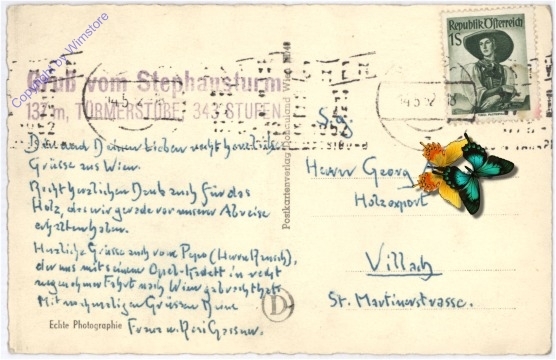 Copyright by Wimstore
Gruß vom Stephansturm
137 m, TÜRMERSTUBE, 343 STUFEN
Republik Österreich
1S
Dir und Deinen Lieben recht herzliche
Grüsse aus Wien.
Recht herzlichen Dank auch für das
Holz, das wir gerade vor unserer Abreise
erhalten haben.
Herzliche Grüsse auch vom Pepo (Herrn
der uns mit seinem Opel-Kadett in recht
angenehmer Fahrt nach Wien gebracht hat.
Mit nochmaligen Grüssen Deine
Franz u. Resi Gassner.
Echte Photographie
D
Postkartenverlag
Wien
S.g.
Herrn Georg
Holzexport
Villach
St. Martinerstrasse.